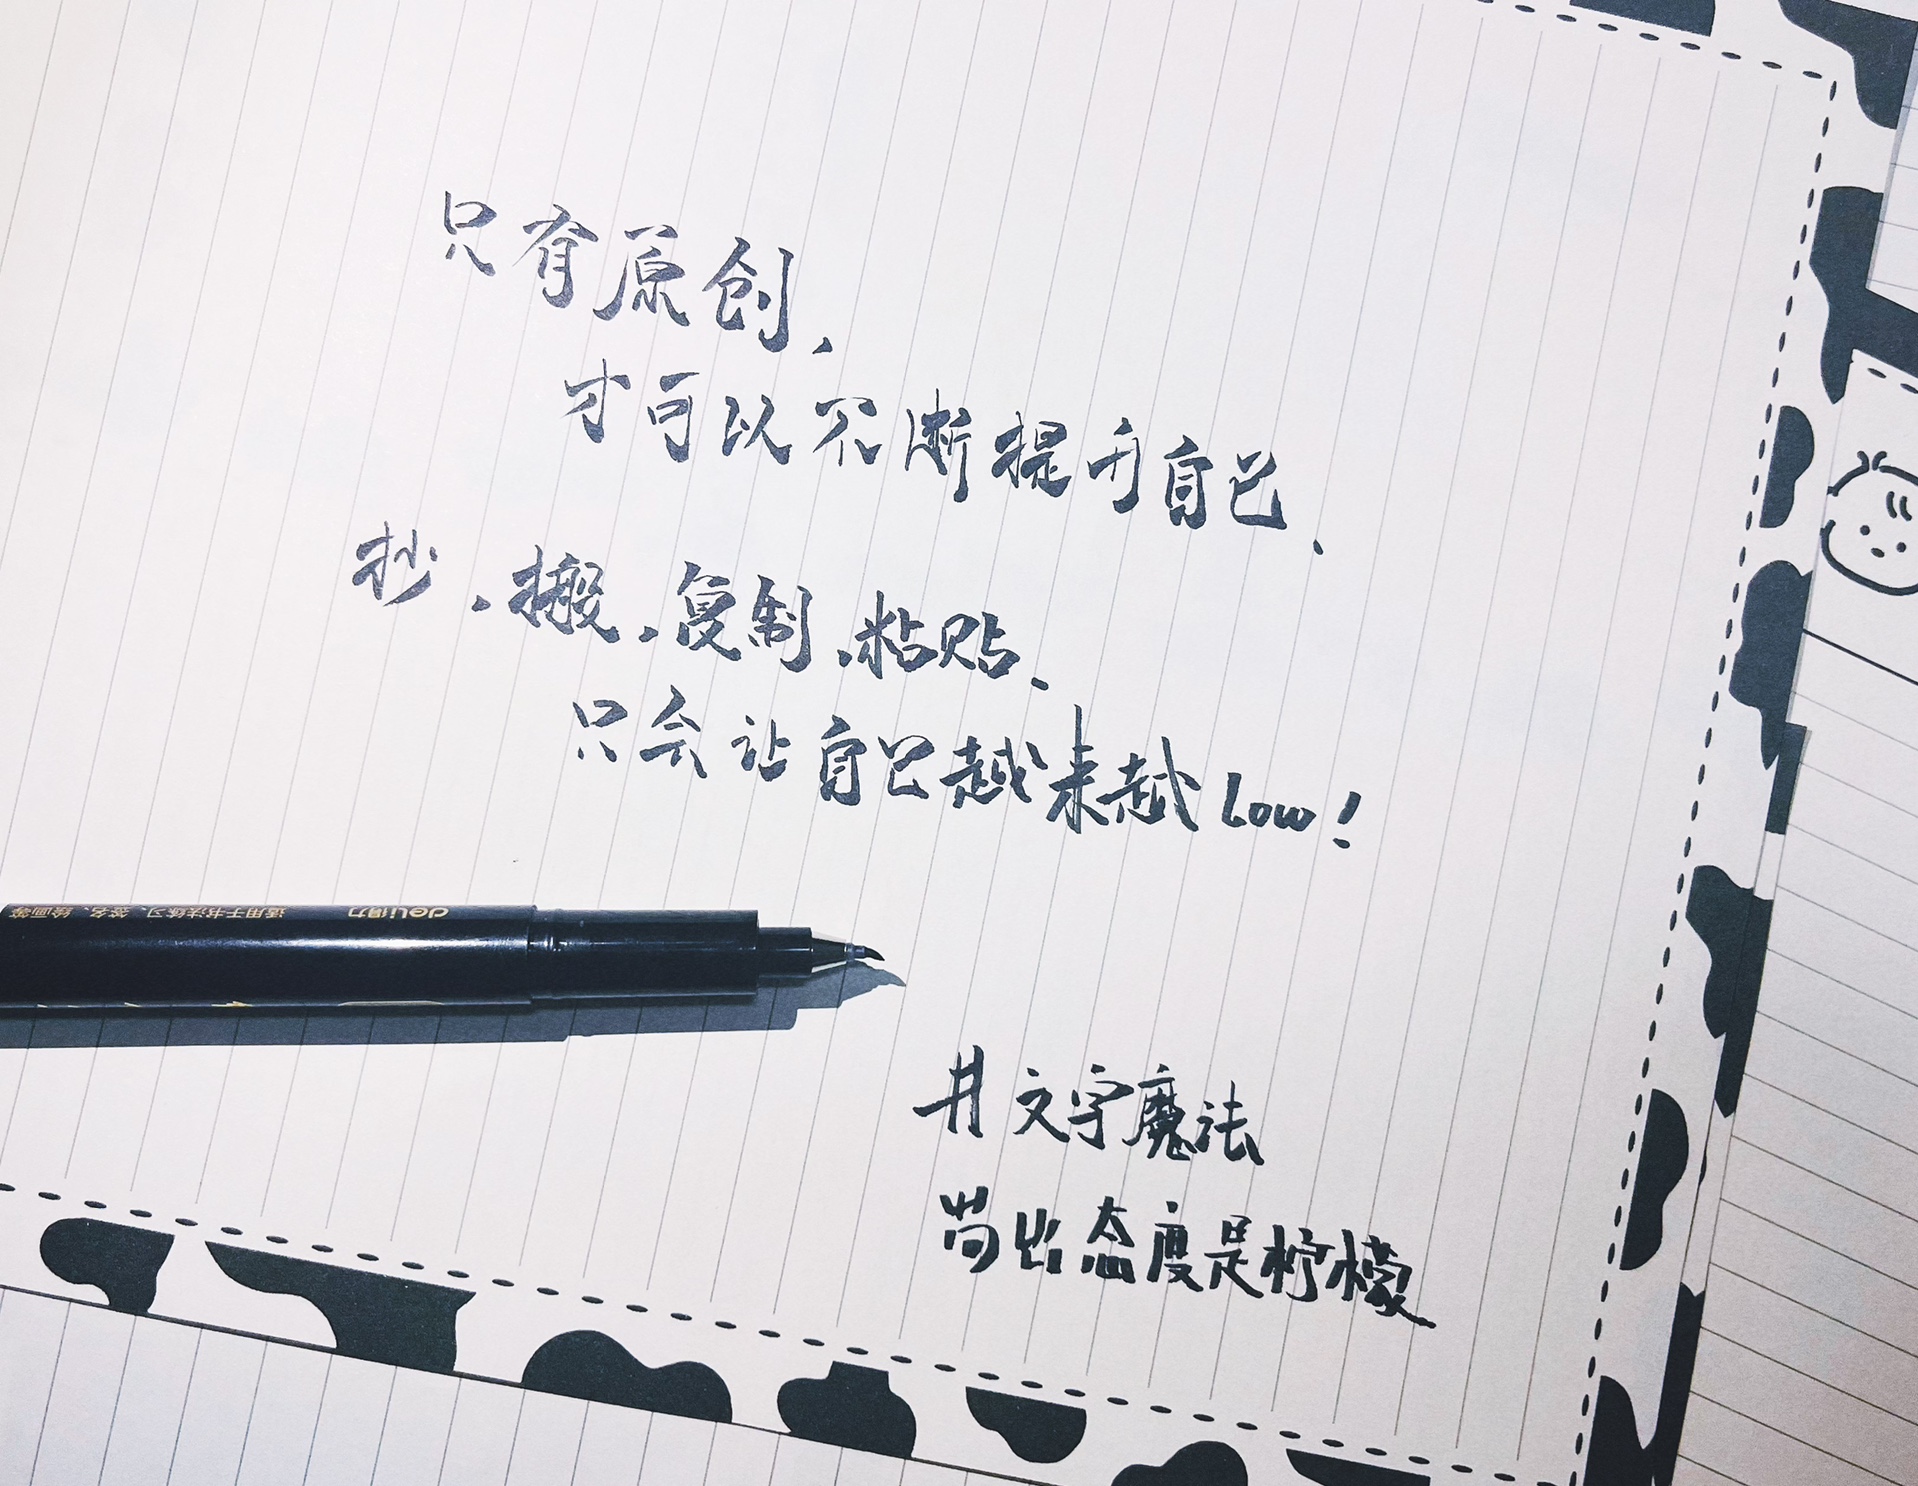 只有原创，
才可以不断提升自己、
抄、搬、复制、粘贴、
只会让自己越来越Low！
deli得力 适用于书法练习、签名、绘画等
井文字魔法
尚出态度是柠檬